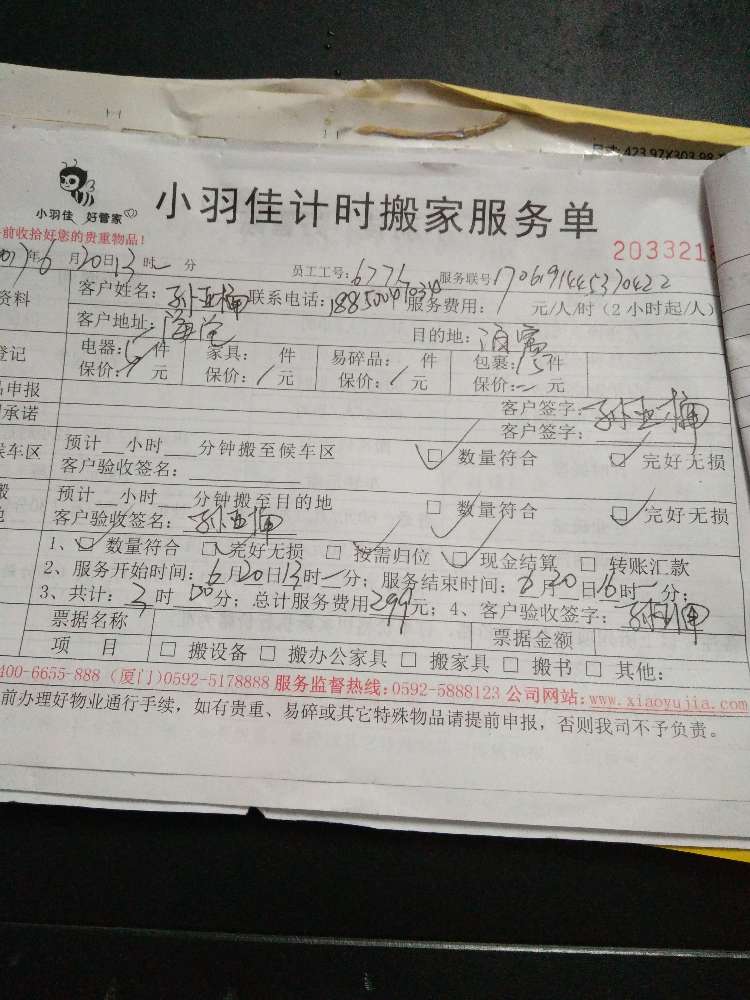 尺寸: 423.97X303.98
小羽佳 好管家
小羽佳计时搬家服务单
前收拾好您的贵重物品!
2033218
年6月20日13时一分 员工工号: 服务联号:
资料 客户姓名:孙亚楠 联系电话: 服务费用: 元/人/时(2小时起/人)
客户地址: 目的地:
登记 电器: 件 家具: 件 易碎品: 件 包裹: 件
保价: 元 保价: 元 保价: 元 保价: 元
品申报 客户签字:孙亚楠
承诺 客户签字:
候车区 预计__小时___分钟搬至候车区 数量符合 完好无损
客户验收签名:
搬 预计__小时___分钟搬至目的地 数量符合 完好无损
客户验收签名:孙亚楠
1、数量符合 完好无损 按需归位 现金结算 转账汇款
2、服务开始时间:6月20日13时一分;服务结束时间:6月20日16时一分;
3、共计:3时00分;总计服务费用299元;4、客户验收签字:孙亚楠
票据名称 票据金额
项 目 □ 搬设备 □ 搬办公家具 □ 搬家具 □ 搬书 □ 其他:
400-6655-888 (厦门)0592-5178888 服务监督热线:0592-5888123 公司网站:www.xiaoyujia.com
前办理好物业通行手续,如有贵重、易碎或其它特殊物品请提前申报,否则我司不予负责。